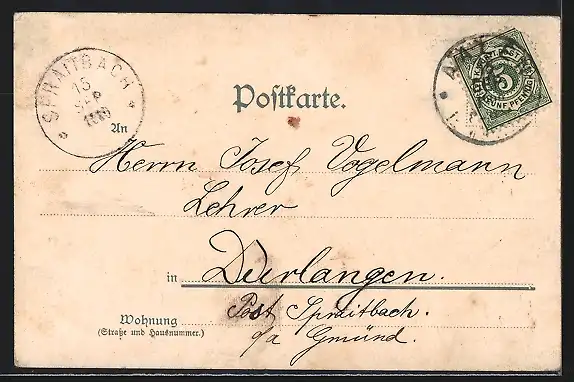 SPRAITBACH
15
SEP
Postkarte.
FÜNF PFENNIG
5
An
Herrn Josef Vogelmann
Lehrer
in Durlangen.
Post Spraitbach.
Wohnung
(Straße und Hausnummer.)
o/a Gmünd.